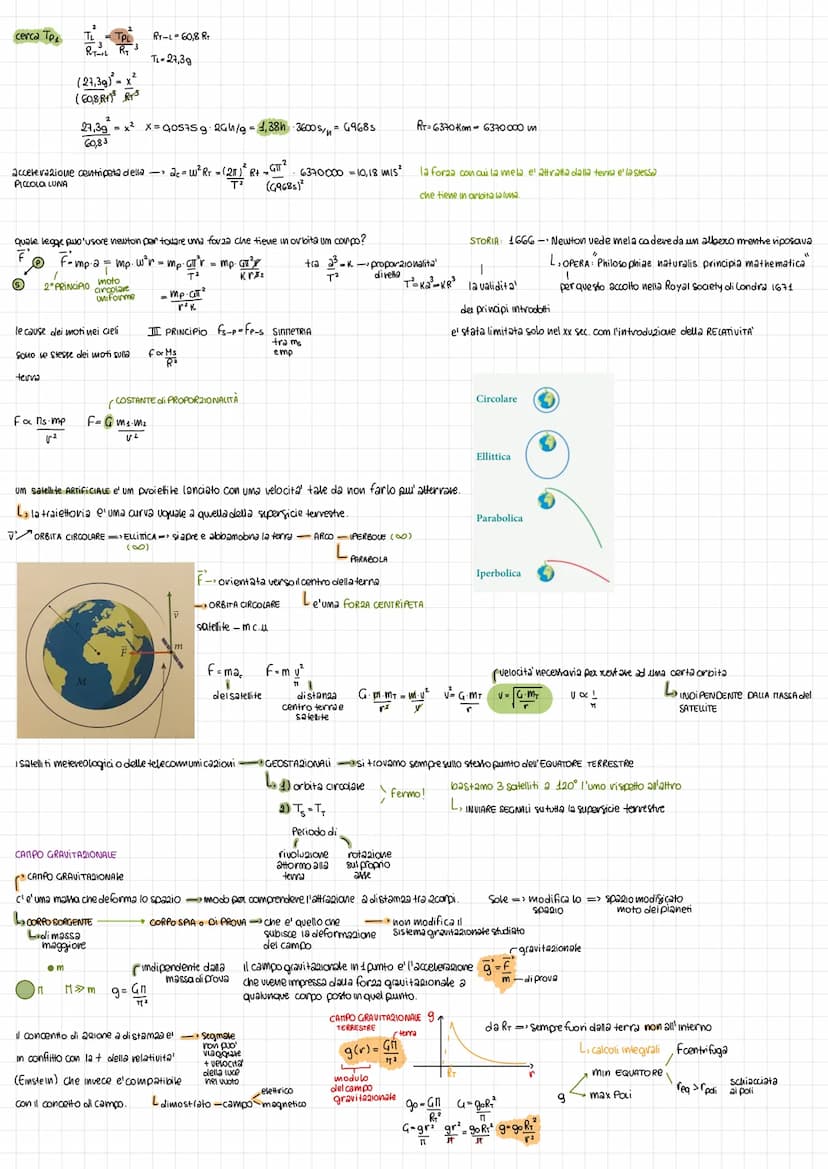 cerca Tp₁ T_L²/R_{T→L}³ = T_{PL}²/R_T³ R_{T-L} = 60,8 R_T
T_L = 27,3g
(27,3g)²/(60,8 R_T)³ = x²/R_T³
27,3g²/60,8³ = x² x = 0,0575g · 24h/g = 1,38h · 3600 s/h = 4968s R_T = 6370 Km = 6370000 m
accelerazione centripeta della PICCOLA LUNA → a_c = ω² R_T = (2π)²/T² R_T = 4π²/(4968s)² · 6370000 = 10,18 m/s²
la forza con cui la mela e' attratta dalla terra e' la stessa
che tiene in orbita la luna.
quale legge puo' usare newton per totare una forza che tiene in orbita un corpo?
F⃗ P S
F⃗ = mp·a = mp·ω²r = mp·4π²/T² r = mp·4π²r/Kr³
2° PRINCIPIO moto circolare uniforme
= mp·4π²/r²K
tra a³/T² = K → proporzionalita' diretta T² = Ka³ = KR³
STORIA: 1666 → Newton vede mela cadere da un albero mentre riposava
L, OPERA: "Philosophiae naturalis principia mathematica"
per questo accolto nella Royal Society di Londra 1671
la validita'
dei principi introdotti
e' stata limitata solo nel XX sec. com l'introduzione della RELATIVITA'
le cause dei moti nei cieli
sono le stesse dei moti sulla
terra
III PRINCIPIO F_{S-P} = F_{P-S} SIMMETRIA tra ms e mp
F ∝ Ms/R²
COSTANTE di PROPORZIONALITÀ
F ∝ ms·mp/r² F = G m₁·m₂/r²
Circolare
Ellittica
Parabolica
Iperbolica
um satellite ARTIFICIALE e' um proiettile lanciato con uma velocita' tale da non farlo piu' atterrare.
L, la traiettoria e' uma curva uguale a quella della superficie terrestre.
v⃗ ↗ ORBITA CIRCOLARE => ELLITTICA => si apre e abbamdona la terra — ARCO — IPERBOLE (∞)
(∞)
PARABOLA
r v⃗ F⃗ m M
F⃗ → orientata verso il centro della terra
→ ORBITA CIRCOLARE L e' uma FORZA CENTRIPETA
satellite — m c.u
F = ma_c F = m v²/r
del satellite
distanza centro terra e satellite
G·m·m_T/r² = m·v²/r v² = G·m_T/r v = √(G·m_T/r) v ∝ 1/r
velocita' necessaria per restare ad uma certa orbita
L, INDIPENDENTE DALLA MASSA del SATELLITE
i satelliti metereologici o delle telecomunicazioni → GEOSTAZIONALI → si trovamo sempre sullo stesso punto dell'EQUATORE TERRESTRE
1) orbita circolare
2) T_S = T_T
fermo!
bastamo 3 satelliti a 120° l'umo rispetto all'altro
L, INVIARE SEGNALI su tutta la superficie terrestre
Periodo di
rivoluzione attormo alla terra
rotazione sul proprio asse
CAMPO GRAVITAZIONALE
CAMPO GRAVITAZIONALE
c'e' uma massa che deforma lo spazio → modo per comprendere l'attrazione a distamza tra 2 corpi. Sole => modifica lo spazio => spazio modificato moto dei pianeti
CORPO SORGENTE → CORPO SPIA o DI PROVA → che e' quello che subisce la deformazione del campo → non modifica il sistema gravitazionale studiato
L, di massa maggiore
m
M M ≫ m g = GM/r²
indipendente dalla massa di prova
il campo gravitazionale in 1 punto e' l'accelerazione
che viene impressa dalla forza gravitazionale a
qualunque corpo posto in quel punto.
g⃗ = F⃗/m
gravitazionale
di prova
il concetto di azione a distamza e'
in conflitto con la t della relativita'
(Einstein) che invece e' compatibile
con il concetto di campo.
segnale non puo' viaggiare + velocita' della luce nel vuoto
L dimostrato → campo elettrico magnetico
CAMPO GRAVITAZIONALE TERRESTRE
terra
g(r) = GM/r²
modulo del campo gravitazionale
g R_T r
da R_T => sempre fuori dalla terra non all'interno
L, calcoli integrali
g min EQUATORE
max Poli
Fcentrifuga
r_eq > r_poli schiacciata ai poli
g₀ = GM/R_T² G = g₀R_T²/M
G = gr²/M gr²/M = g₀R_T²/M g = g₀ R_T²/r²